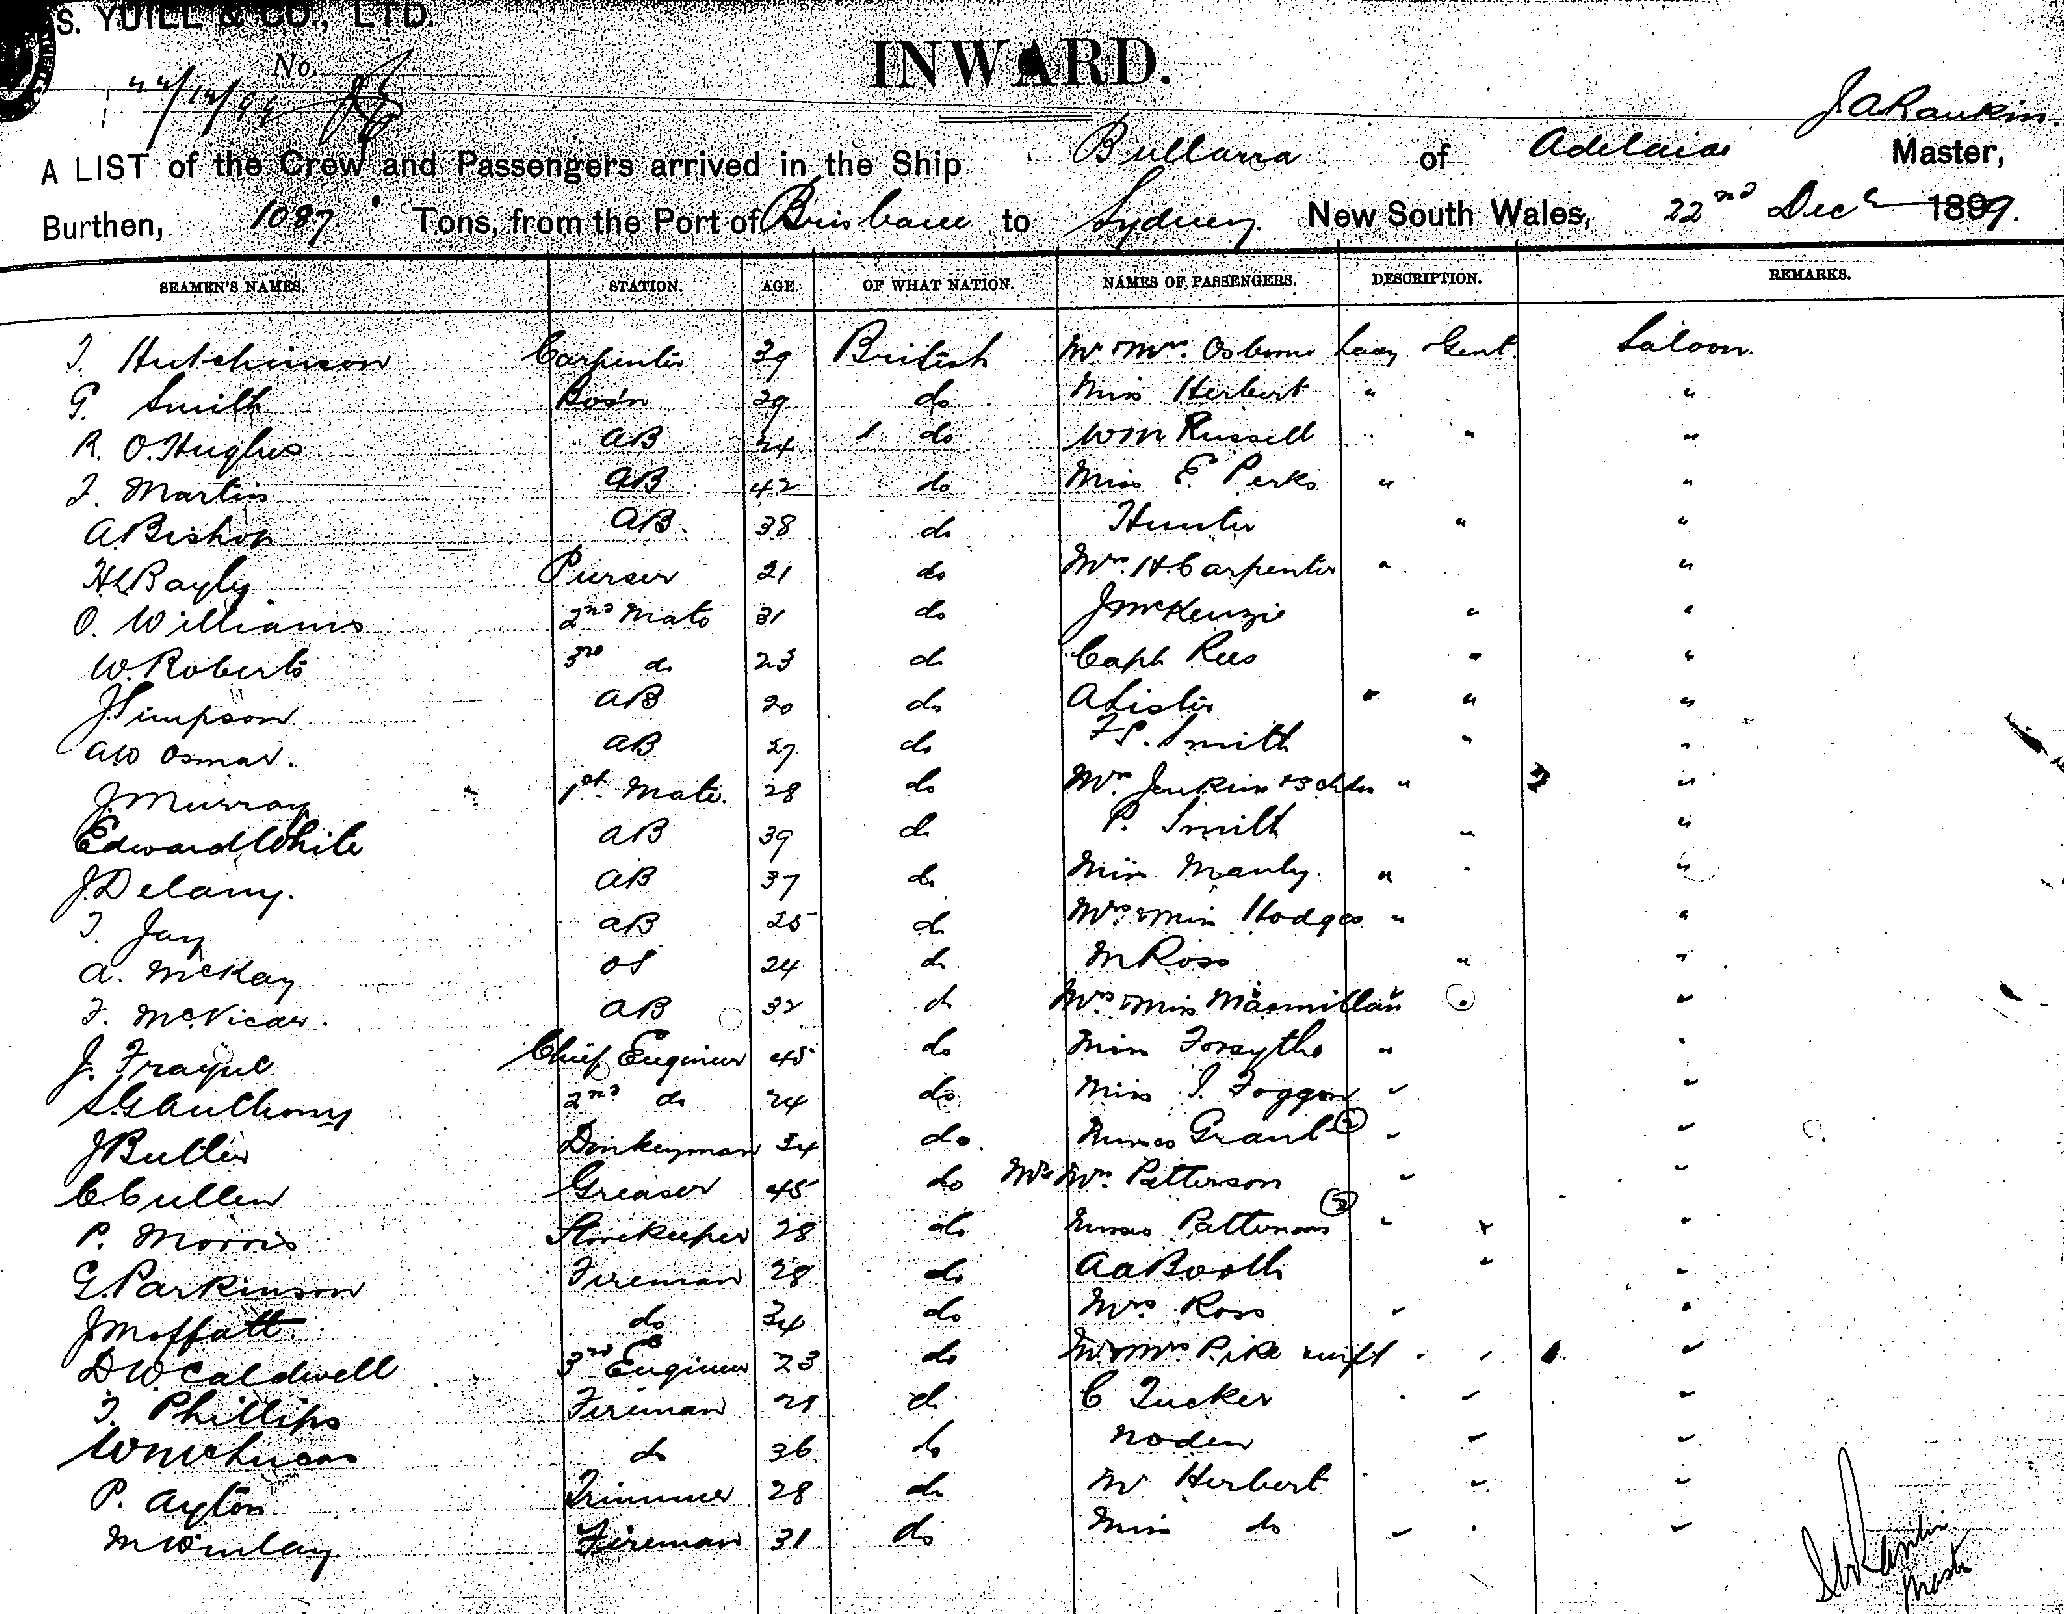 S. YUILL & CO., LTD.
No.
INWARD.
J. A. Rankin.
A LIST of the Crew and Passengers arrived in the Ship Bullarra of Adelaide Master,
Burthen, 1087 Tons, from the Port of Brisbane to Sydney. New South Wales, 22nd Dec 1899.
SEAMEN'S NAMES. STATION. AGE. OF WHAT NATION. NAMES OF PASSENGERS. DESCRIPTION. REMARKS.
T. Hutchinson Carpenter 39 British Mr & Mrs. Osborne Lady & Gent. Saloon.
G. Smith Bos'n 29 do Miss Herbert " "
R. O. Hughes AB 24 do Wm Russell " "
T. Martin AB 42 do Miss E. Perks " "
A. Bishop AB. 38 do Hunter " "
H L Bayly. Purser 21 do Mrs. H. Carpenter " "
O. Williams 2nd Mate 31 do J McKenzie " "
W. Roberts 3rd do 23 do Capt Rees " "
J. Simpson AB 20 do A Lister " " "
AW Osmar. AB 27 do F S. Smith " "
J. Murray 1st Mate. 28 do Mrs. Jenkins & 3 chdn " "
Edward White AB 39 do P. Smith " "
J. Delany. AB 37 do Miss Manly. " "
T. Jay AB 25 do Mrs & Miss Hodges " "
A. McKay OS 24 do M Ross " "
F. McVicar. AB 32 do Mrs & Miss Macmillan "
J. Frayne Chief Engineer 45 do Miss Forsythe " "
S. G. Anthony 2nd do 24 do Miss I. Foggon " "
J Butler Donkeyman 34 do. Misses Grant " "
C. Cullen Greaser 45 do Mr Mrs. Patterson " "
P. Morris Storekeeper 28 do Misses Pattersons " "
G. Parkinson Fireman 28 do A A Booth " "
J Moffatt do 34 do Mrs Ross " "
D W. Caldwell 3rd Engineer 23 do Mr & Mrs Pike " "
T. Phillips Fireman 21 do C Tucker " "
do 36 do Noden " "
P. Ayton Trimmer 28 do Mr Herbert " "
Fireman 31 do Miss do " "
J A Rankin
Master